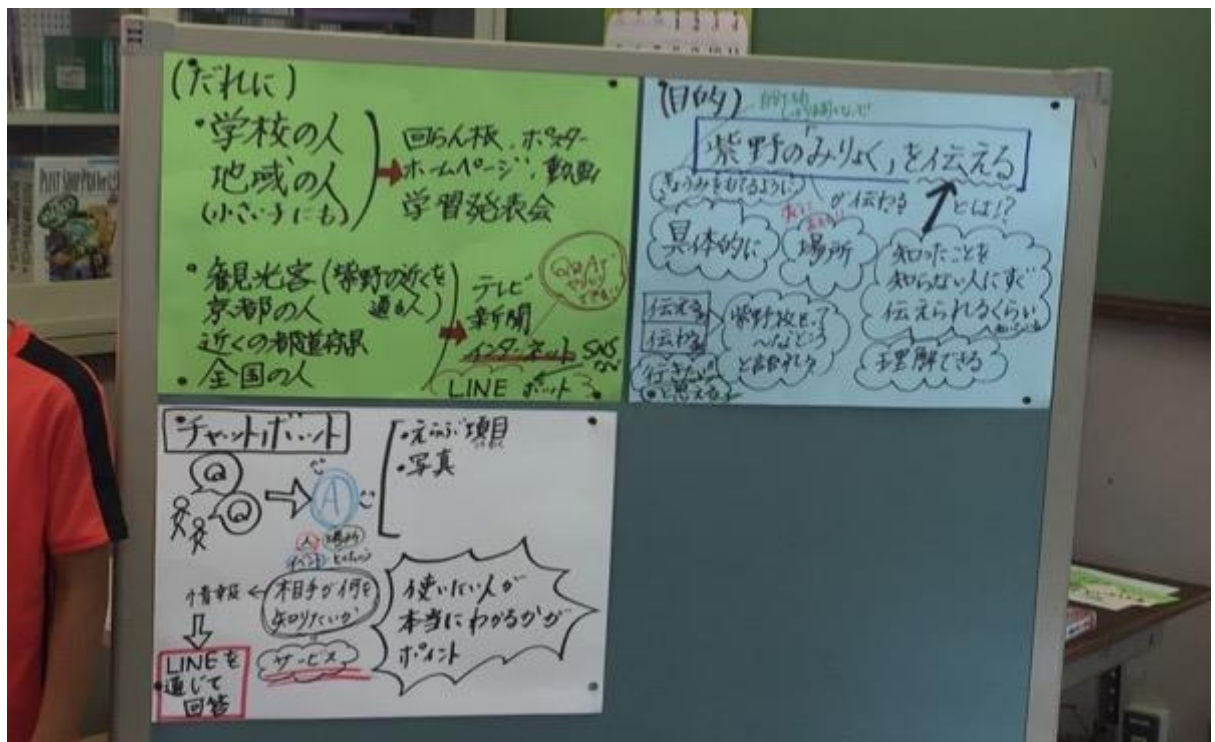 (だれに)
・学校の人
地域の人
(小さい子にも)
回らん板、ポスター
ホームページ、動画
学習発表会
・観光客(紫野の近くを通る人)
京都の人
近くの都道府県
・全国の人
テレビ
新聞
インターネット SNS
LINE ボット
(目的)
紫野の「みりょく」を伝える
きょうみをもてるように
が伝わる
とは!?
具体的に
場所
知ったことを
知らない人にすぐ
伝えられるくらい
理解できる
伝える
伝わる
行きたい
と思える
チャットボット
Q
Q
A
・えらぶ項目
・写真
人 場所
イベント
情報 ← 相手が何を
知りたいか
サービス
LINEを
通じて
回答
使いたい人が
本当にわかるかが
ポイント